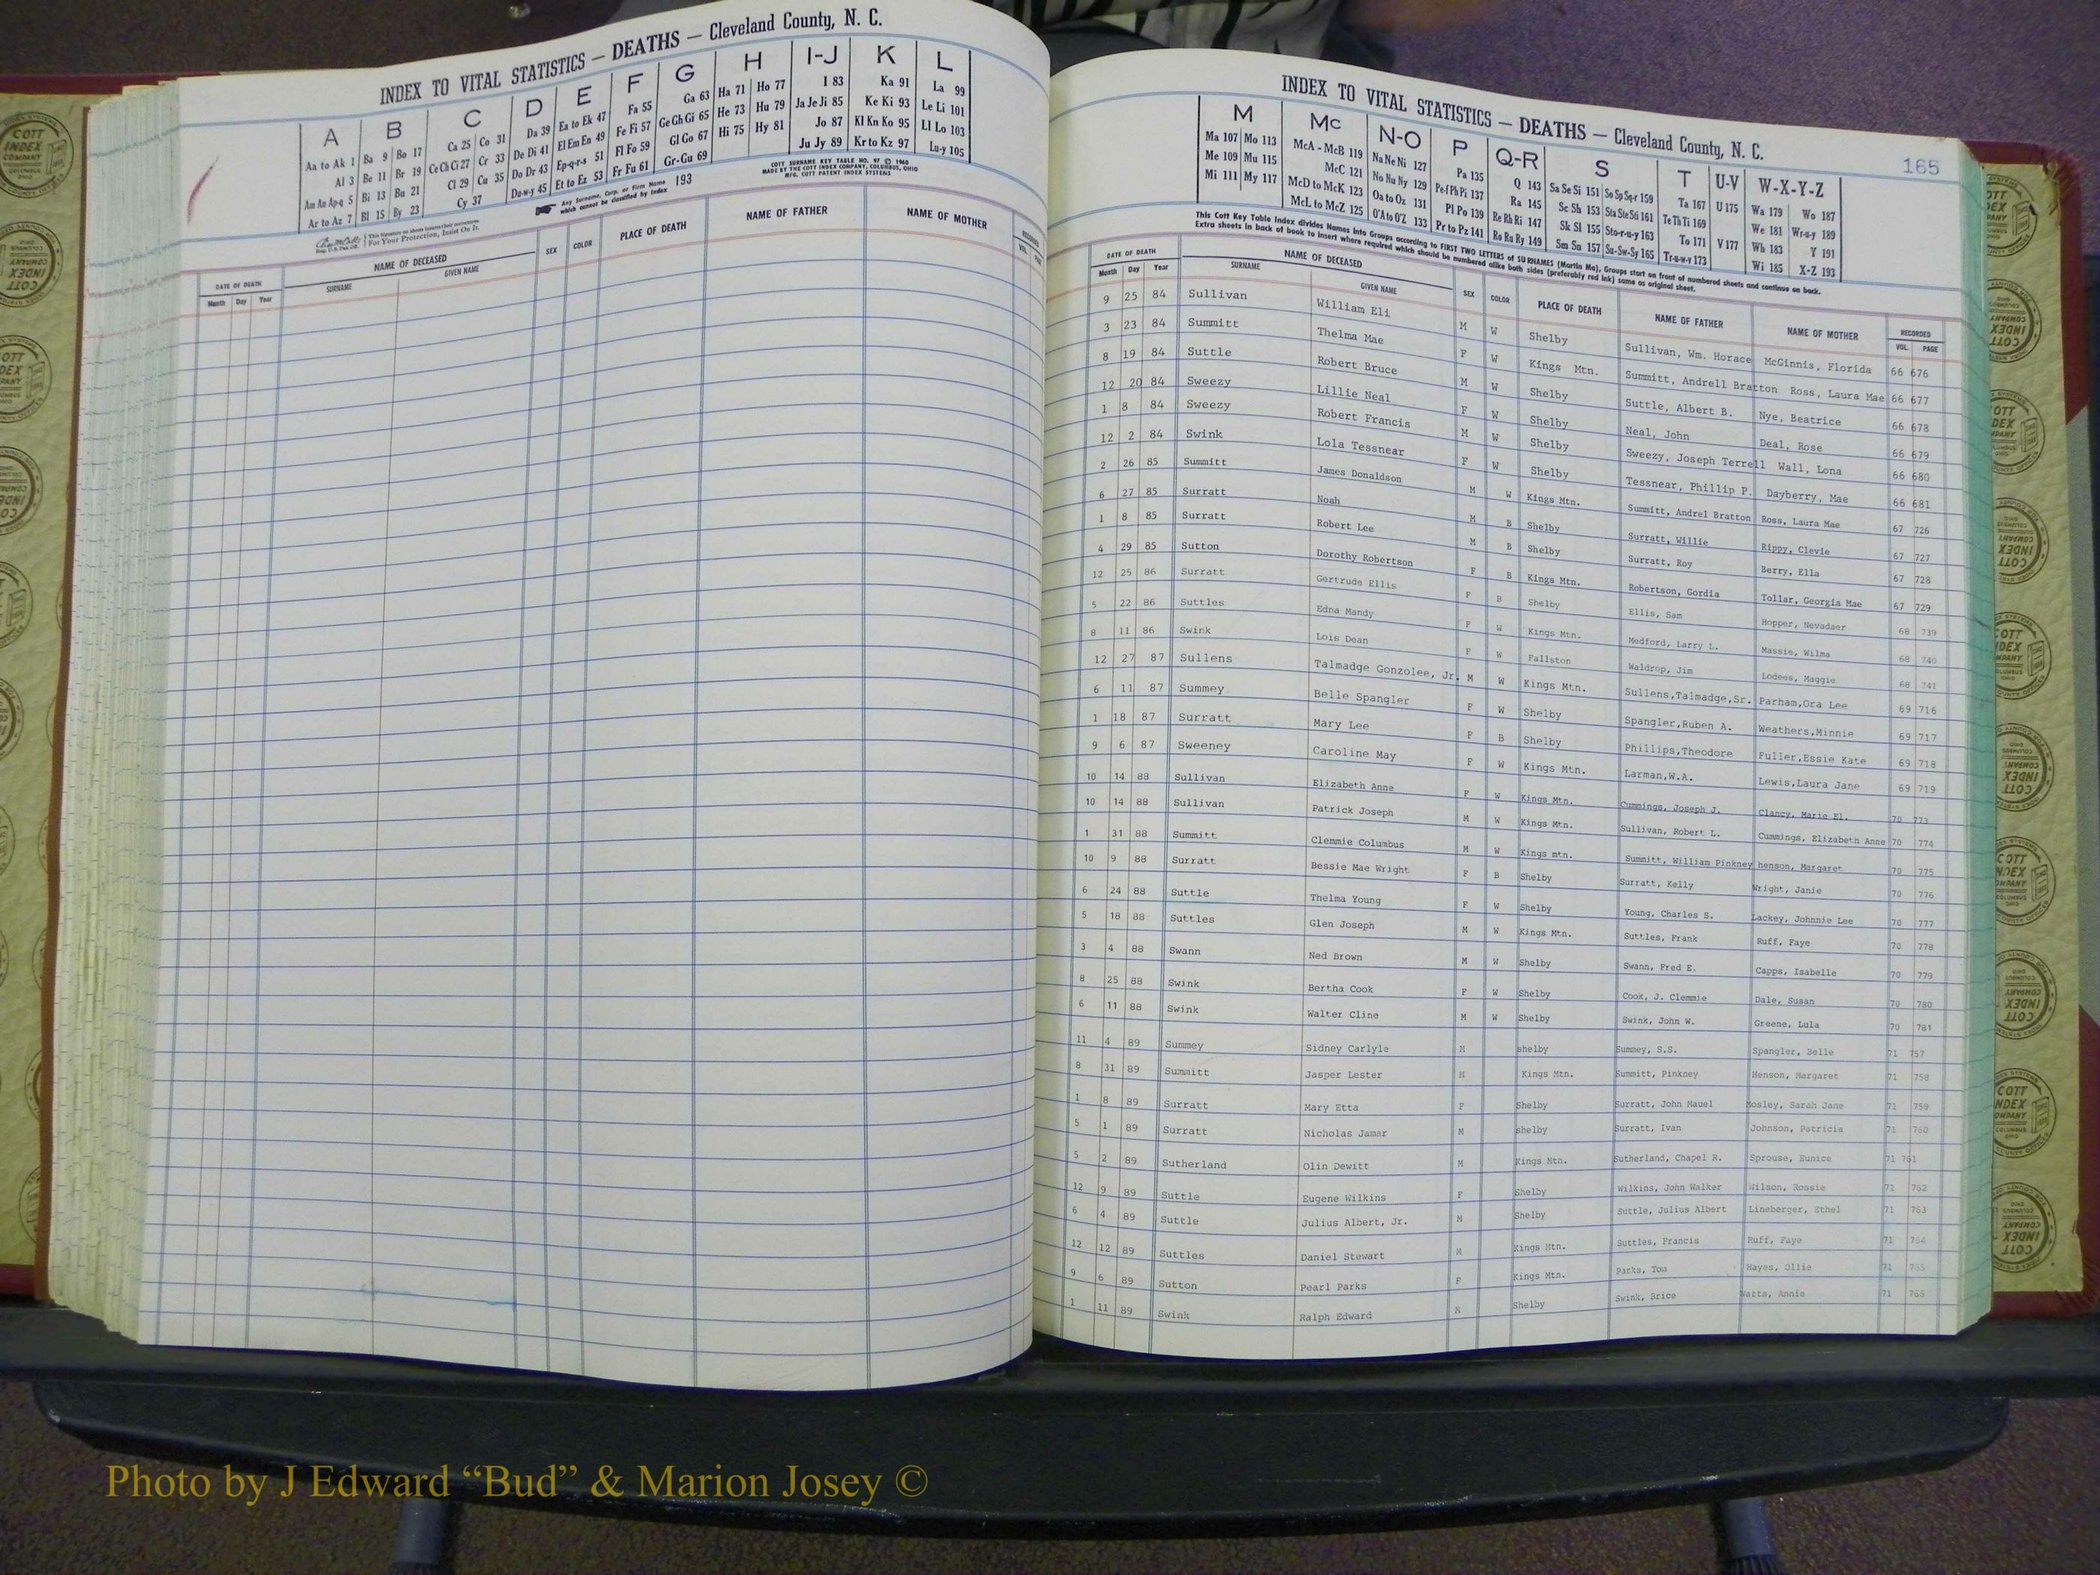 INDEX TO VITAL STATISTICS — DEATHS — Cleveland County, N. C.
A B C D E F G H I-J K L
Aa to Ak 1 Ba 9 Bo 17 Ca 25 Co 31 Da 39 Ea to Ek 47 Fa 55 Ga 63 Ha 71 Ho 77 I 83 Ka 91 La 99
Al 3 Be 11 Br 19 Ce Ch Ci 27 Cr 33 De Di 41 El Em En 49 Fe Fi 57 Ge Gh Gi 65 He 73 Hu 79 Ja Je Ji 85 Ke Ki 93 Le Li 101
Am An Ap-q 5 Bi 13 Bu 21 Cl 29 Cu 35 Do Dr 43 Ep-q-r-s 51 Fl Fo 59 Gl Go 67 Hi 75 Hy 81 Jo 87 Kl Kn Ko 95 Ll Lo 103
Ar to Az 7 Bl 15 By 23 Cy 37 Du-w-y 45 Et to Ez 53 Fr Fu 61 Gr-Gu 69 Ju Jy 89 Kr to Kz 97 Lu-y 105
Any Surname, Corp. or Firm Name which cannot be classified by Index 193
COTT SURNAME KEY TABLE NO. 97 © 1960
MADE BY THE COTT INDEX COMPANY, COLUMBUS, OHIO
MFG. COTT PATENT INDEX SYSTEMS
For Your Protection, Insist On It.
DATE OF DEATH NAME OF DECEASED SEX COLOR PLACE OF DEATH NAME OF FATHER NAME OF MOTHER RECORDED
Month Day Year SURNAME GIVEN NAME VOL. PAGE
INDEX TO VITAL STATISTICS — DEATHS — Cleveland County, N. C.
165
M Mc N-O P Q-R S T U-V W-X-Y-Z
Ma 107 Mo 113 McA - McB 119 Na Ne Ni 127 Pa 135 Q 143 Sa Se Si 151 So Sp Sq-r 159 Ta 167 U 175 Wa 179 Wo 187
Me 109 Mu 115 McC 121 No Nu Ny 129 Pe-f Ph Pi 137 Ra 145 Sc Sh 153 Sta Ste Sti 161 Te Th Ti 169 We 181 Wr-u-y 189
Mi 111 My 117 McD to McK 123 Oa to Oz 131 Pl Po 139 Re Rh Ri 147 Sk Sl 155 Sto-r-u-y 163 To 171 V 177 Wh 183 Y 191
McL to McZ 125 O'A to O'Z 133 Pr to Pz 141 Ro Ru Ry 149 Sm Sn 157 Su-Sw-Sy 165 Tr-u-w-y 173 Wi 185 X-Z 193
This Cott Key Table Index divides Names into Groups according to FIRST TWO LETTERS of SURNAMES (Martin Ma), Groups start on front of numbered sheets and continue on back.
Extra sheets in back of book to insert where required which should be numbered alike both sides (preferably red ink) same as original sheet.
DATE OF DEATH NAME OF DECEASED SEX COLOR PLACE OF DEATH NAME OF FATHER NAME OF MOTHER RECORDED
Month Day Year SURNAME GIVEN NAME VOL. PAGE
9 25 84 Sullivan William Eli M W Shelby Sullivan, Wm. Horace McGinnis, Florida 66 676
3 23 84 Summitt Thelma Mae F W Kings Mtn. Summitt, Andrell Bratton Ross, Laura Mae 66 677
8 19 84 Suttle Robert Bruce M W Shelby Suttle, Albert B. Nye, Beatrice 66 678
12 20 84 Sweezy Lillie Neal F W Shelby Neal, John Deal, Rose 66 679
1 8 84 Sweezy Robert Francis M W Shelby Sweezy, Joseph Terrell Wall, Lona 66 680
12 2 84 Swink Lola Tessnear F W Shelby Tessnear, Phillip P. Dayberry, Mae 66 681
2 26 85 Summitt James Donaldson M W Kings Mtn. Summitt, Andrel Bratton Ross, Laura Mae 67 726
6 27 85 Surratt Noah M B Shelby Surratt, Willie Rippy, Clevie 67 727
1 8 85 Surratt Robert Lee M B Shelby Surratt, Roy Berry, Ella 67 728
4 29 85 Sutton Dorothy Robertson F B Kings Mtn. Robertson, Gordia Tollar, Georgia Mae 67 729
12 25 86 Surratt Gertrude Ellis F B Shelby Ellis, Sam Hopper, Nevadaer 68 739
5 22 86 Suttles Edna Mandy F W Kings Mtn. Medford, Larry L. Massie, Wilma 68 740
8 11 86 Swink Lois Dean F W Fallston Waldrop, Jim Lodees, Maggie 68 741
12 27 87 Sullens Talmadge Gonzolee, Jr. M W Kings Mtn. Sullens,Talmadge,Sr. Parham,Ora Lee 69 716
6 11 87 Summey Belle Spangler F W Shelby Spangler,Ruben A. Weathers,Minnie 69 717
1 18 87 Surratt Mary Lee F B Shelby Phillips,Theodore Fuller,Essie Kate 69 718
9 6 87 Sweeney Caroline May F W Kings Mtn. Larman,W.A. Lewis,Laura Jane 69 719
10 14 88 Sullivan Elizabeth Anne F W Kings Mtn. Cummings, Joseph J. Clancy, Marie El. 70 773
10 14 88 Sullivan Patrick Joseph M W Kings Mtn. Sullivan, Robert L. Cummings, Elizabeth Anne 70 774
1 31 88 Summitt Clemmie Columbus M W Kings mtn. Summitt, William Pinkney henson, Margaret 70 775
10 9 88 Surratt Bessie Mae Wright F B Shelby Surratt, Kelly Wright, Janie 70 776
6 24 88 Suttle Thelma Young F W Shelby Young, Charles S. Lackey, Johnnie Lee 70 777
5 18 88 Suttles Glen Joseph M W Kings Mtn. Suttles, Frank Ruff, Faye 70 778
3 4 88 Swann Ned Brown M W Shelby Swann, Fred E. Capps, Isabelle 70 779
8 25 88 Swink Bertha Cook F W Shelby Cook, J. Clemmie Dale, Susan 70 780
6 11 88 Swink Walter Cline M W Shelby Swink, John W. Greene, Lula 70 781
11 4 89 Summey Sidney Carlyle M shelby Summey, S.S. Spangler, Belle 71 757
8 31 89 Summitt Jasper Lester M Kings Mtn. Summitt, Pinkney Henson, Margaret 71 758
1 8 89 Surratt Mary Etta F Shelby Surratt, John Mauel Mosley, Sarah Jane 71 759
5 1 89 Surratt Nicholas Jamar M shelby Surratt, Ivan Johnson, Patricia 71 760
5 2 89 Sutherland Olin Dewitt M Kings Mtn. Sutherland, Chapel R. Sprouse, Eunice 71 761
12 9 89 Suttle Eugene Wilkins F Shelby Wilkins, John Walker Wilson, Rossie 71 762
6 4 89 Suttle Julius Albert, Jr. M Shelby Suttle, Julius Albert Lineberger, Ethel 71 763
12 12 89 Suttles Daniel Stewart M Kings Mtn. Suttles, Francis Ruff, Faye 71 764
9 6 89 Sutton Pearl Parks F Kings Mtn. Parks, Tom Hayes, Ollie 71 765
1 11 89 Swink Ralph Edward M Shelby Swink, Brice Watts, Annie 71 766
COTT INDEX COMPANY COLUMBUS OHIO
Photo by J Edward “Bud” & Marion Josey ©